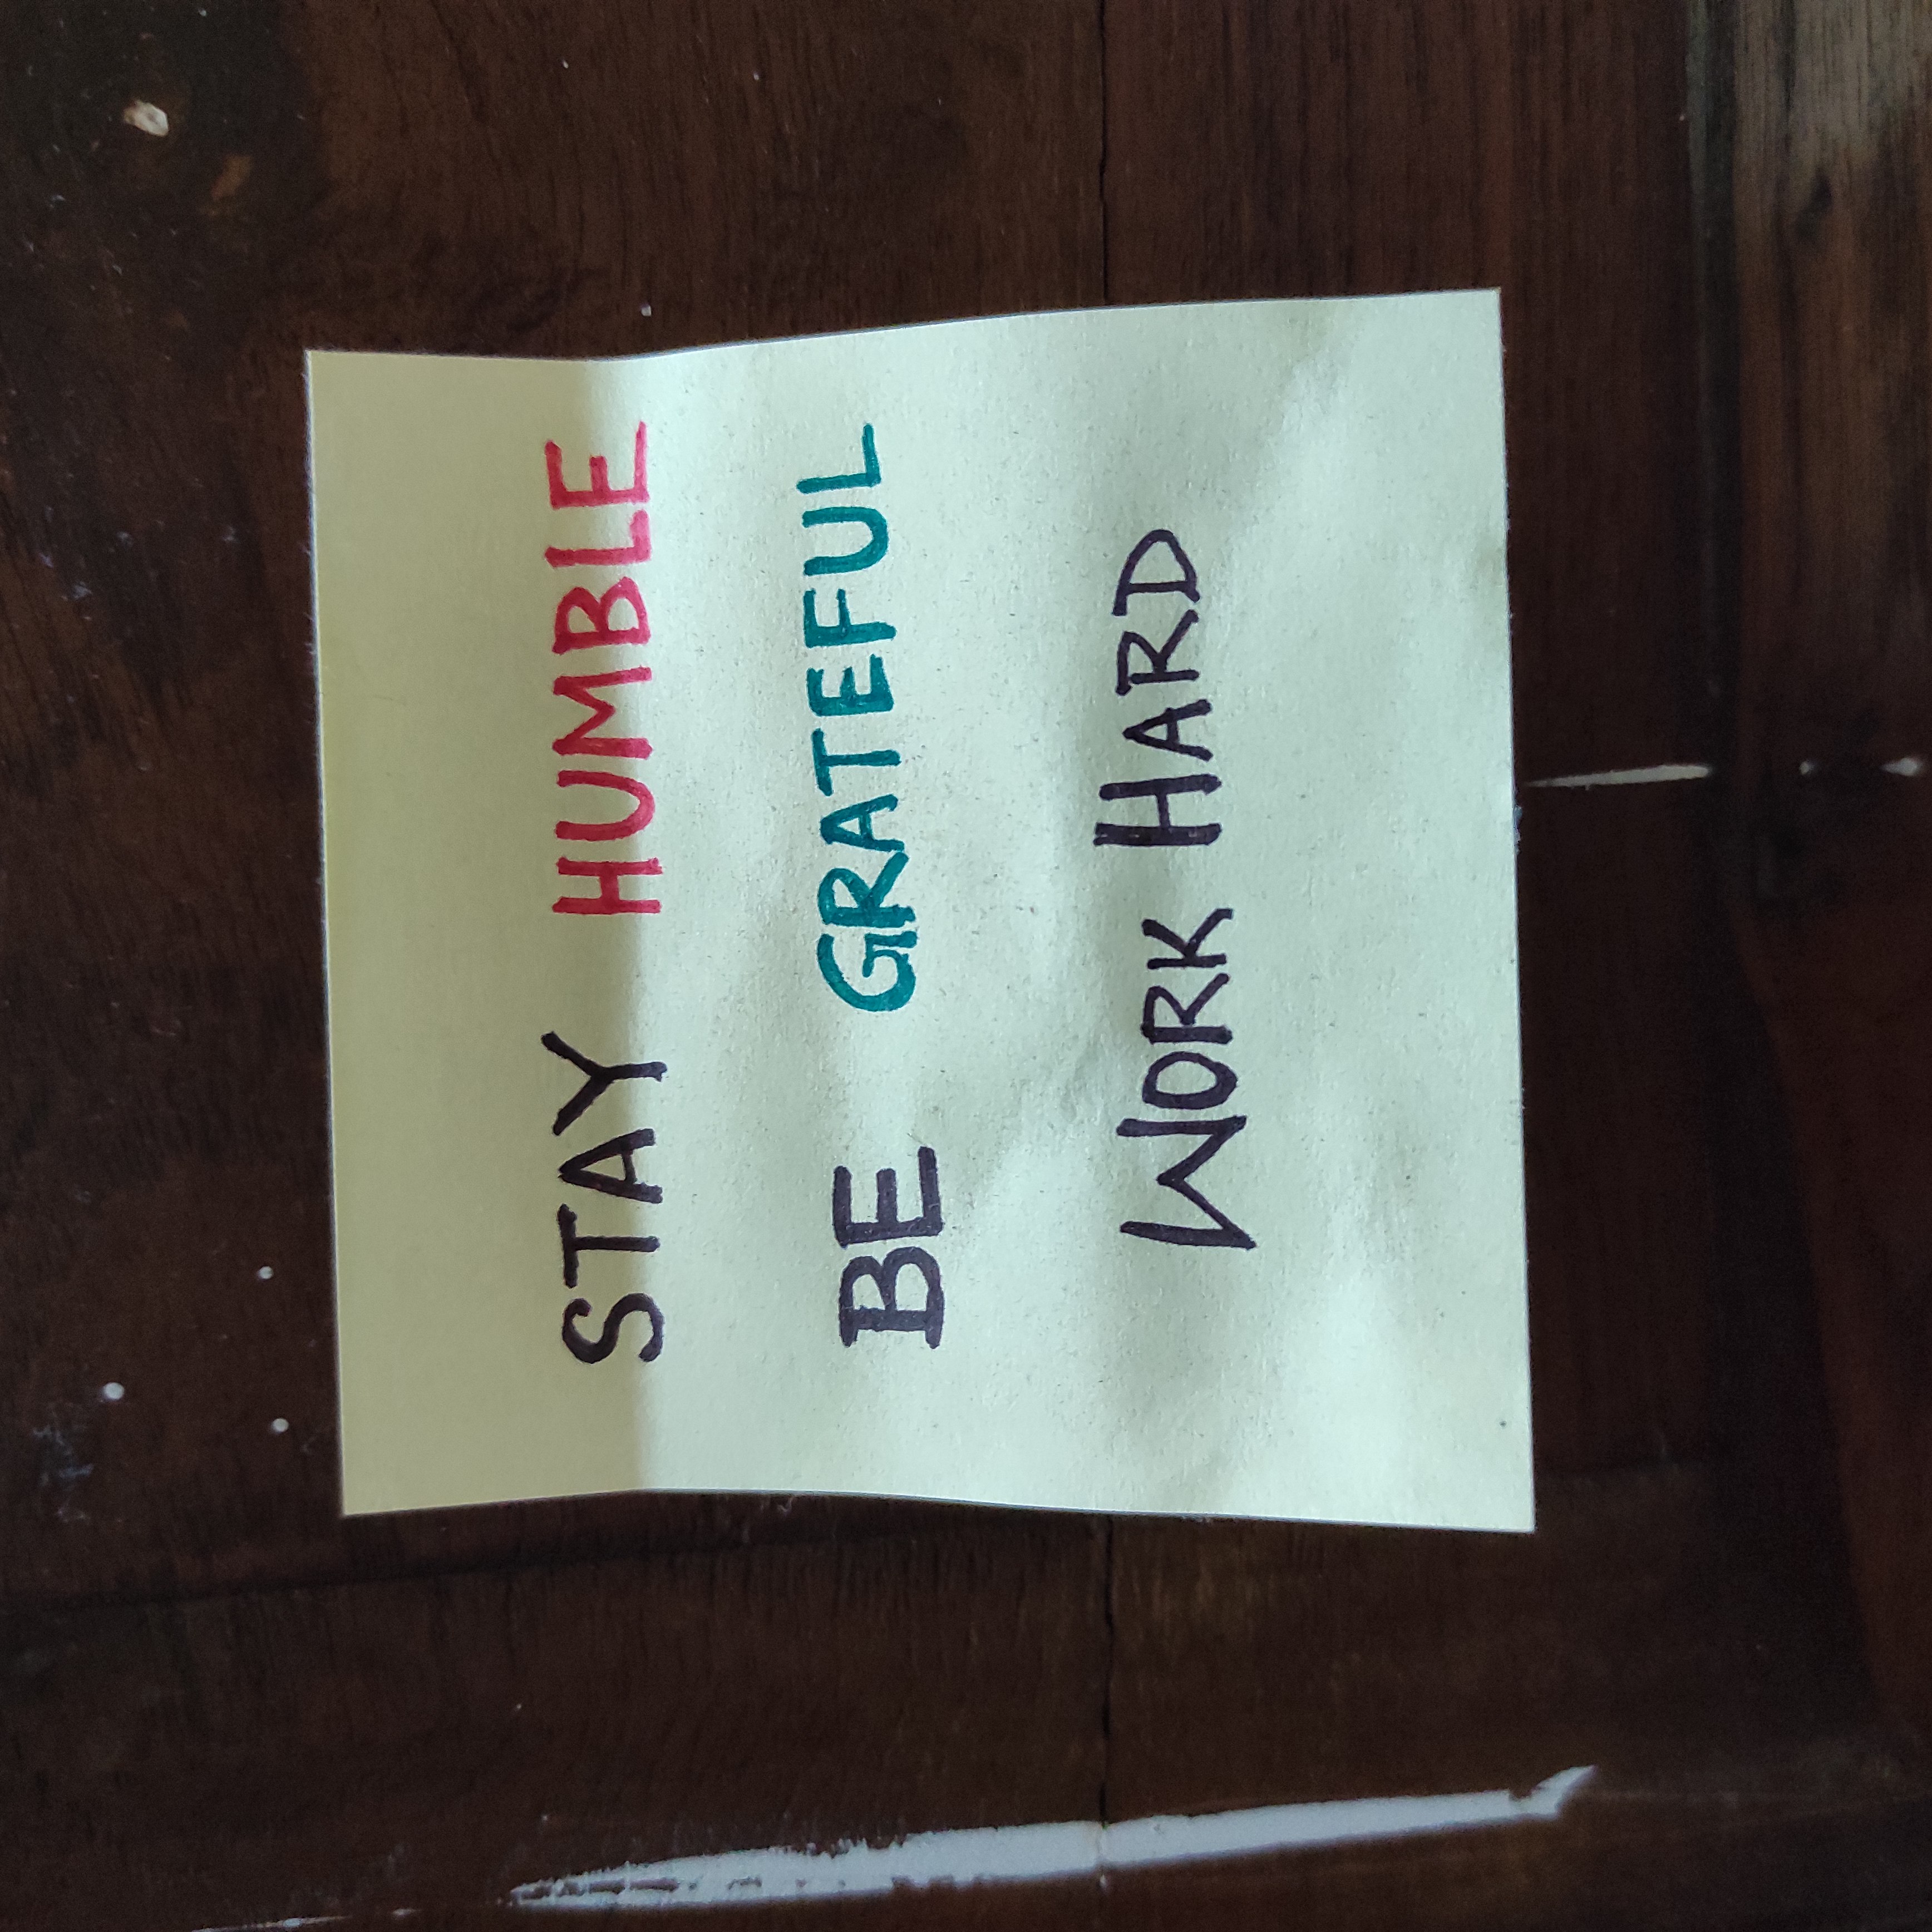 STAY HUMBLE
BE GRATEFUL
WORK HARD